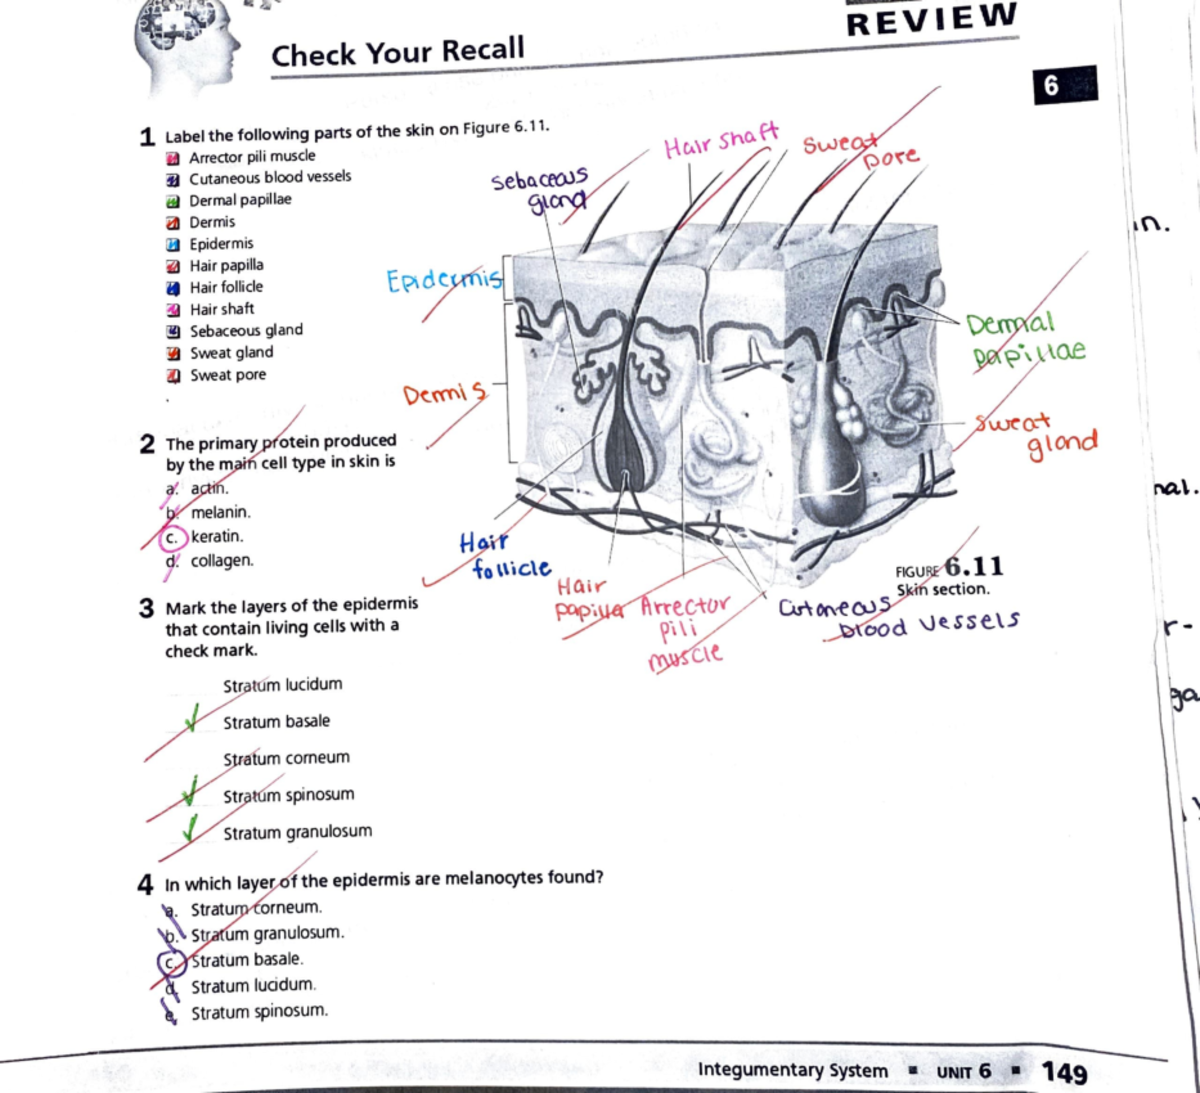 REVIEW
Check Your Recall
6
1 Label the following parts of the skin on Figure 6.11.
Arrector pili muscle
Cutaneous blood vessels
Dermal papillae
Dermis
Epidermis
Hair papilla
Hair follicle
Hair shaft
Sebaceous gland
Sweat gland
Sweat pore
Hair shaft
Sweat
pore
Sebaceous
gland
Epidermis
Dermis
Dermal
papillae
Sweat
gland
Hair
follicle
Hair
papilla
Arrector
pili
muscle
Cutaneous
blood vessels
FIGURE 6.11
Skin section.
2 The primary protein produced
by the main cell type in skin is
a. actin.
b. melanin.
c. keratin.
d. collagen.
3 Mark the layers of the epidermis
that contain living cells with a
check mark.
Stratum lucidum
✓ Stratum basale
Stratum corneum
✓ Stratum spinosum
✓ Stratum granulosum
4 In which layer of the epidermis are melanocytes found?
a. Stratum corneum.
b. Stratum granulosum.
c. Stratum basale.
d. Stratum lucidum.
e. Stratum spinosum.
in.
nal.
r-
ga
Integumentary System ▪ UNIT 6 ▪ 149